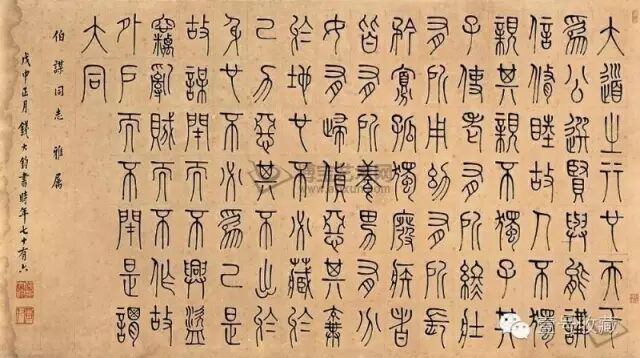 大道之行也天下
為公選賢與能講
信修睦故人不獨
親其親不獨子其
子使老有所終壯
有所用幼有所長
矜寡孤獨廢疾者
皆有所養男有分
女有歸貨惡其棄
於地也不必藏於
己力惡其不出於
身也不必為己是
故謀閉而不興盜
竊亂賊而不作故
外戶而不閉是謂
大同
伯謀同志 雅屬
戊申正月錢大鈞書時年七十有六
壹号收藏